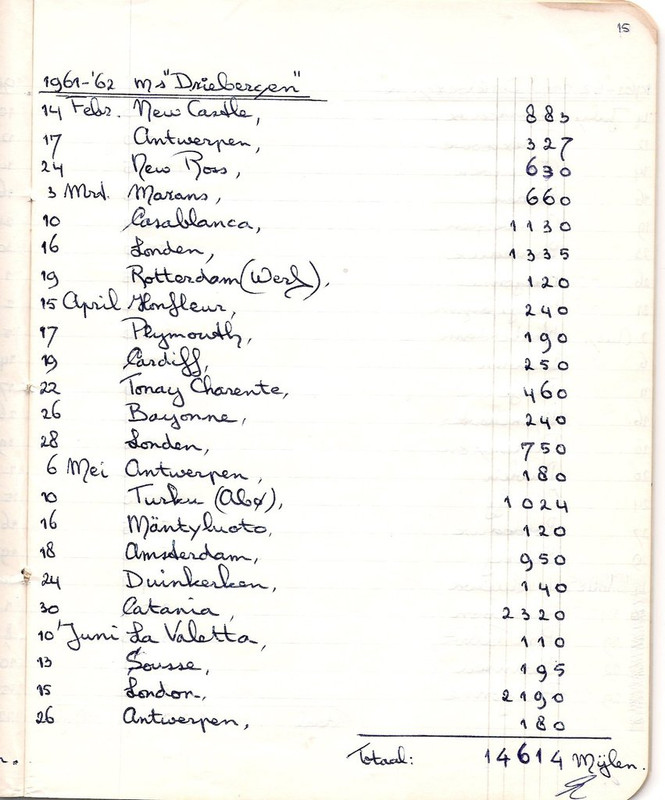 15
1961-'62 ms "Driebergen"
14 Febr. New Castle, 883
17 Antwerpen, 327
24 New Ross, 630
3 Mrt. Marans, 660
10 Casablanca, 1130
16 Londen, 1335
19 Rotterdam (Werf), 120
15 April Honfleur, 240
17 Plymouth, 190
19 Cardiff, 250
22 Tonay Charente, 460
26 Bayonne, 240
28 Londen, 750
6 Mei Antwerpen, 180
10 Turku (Abø), 1024
16 Mäntyluoto, 120
18 Amsterdam, 950
24 Duinkerken, 140
30 Catania, 2320
10 Juni La Valetta, 110
13 Sousse, 195
15 London, 2190
26 Antwerpen, 180
Totaal: 14614 Mijlen.